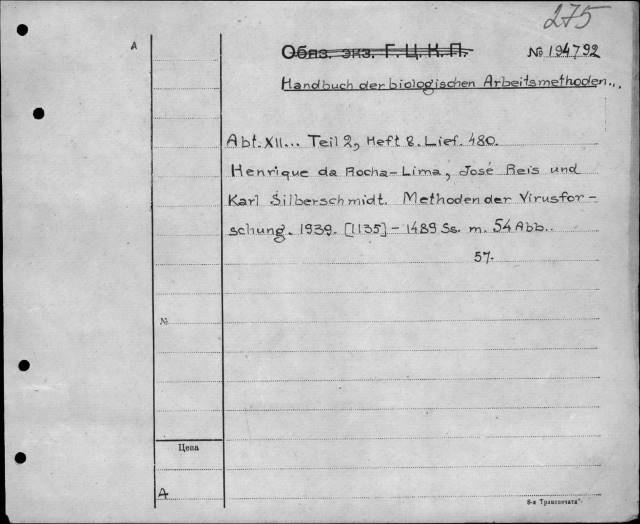 275
A
Обяз. экз. Г. Ц. К. П.
№ 194792
Handbuch der biologischen Arbeitsmethoden...
Abt. XII... Teil 2, Heft 8. Lief. 480.
Henrique da Rocha-Lima, José Reis und
Karl Silberschmidt. Methoden der Virusfor-
schung. 1939. [1135] - 1489 Ss. m. 54 Abb..
57.
№
Цена
A
6-я Транспечата"